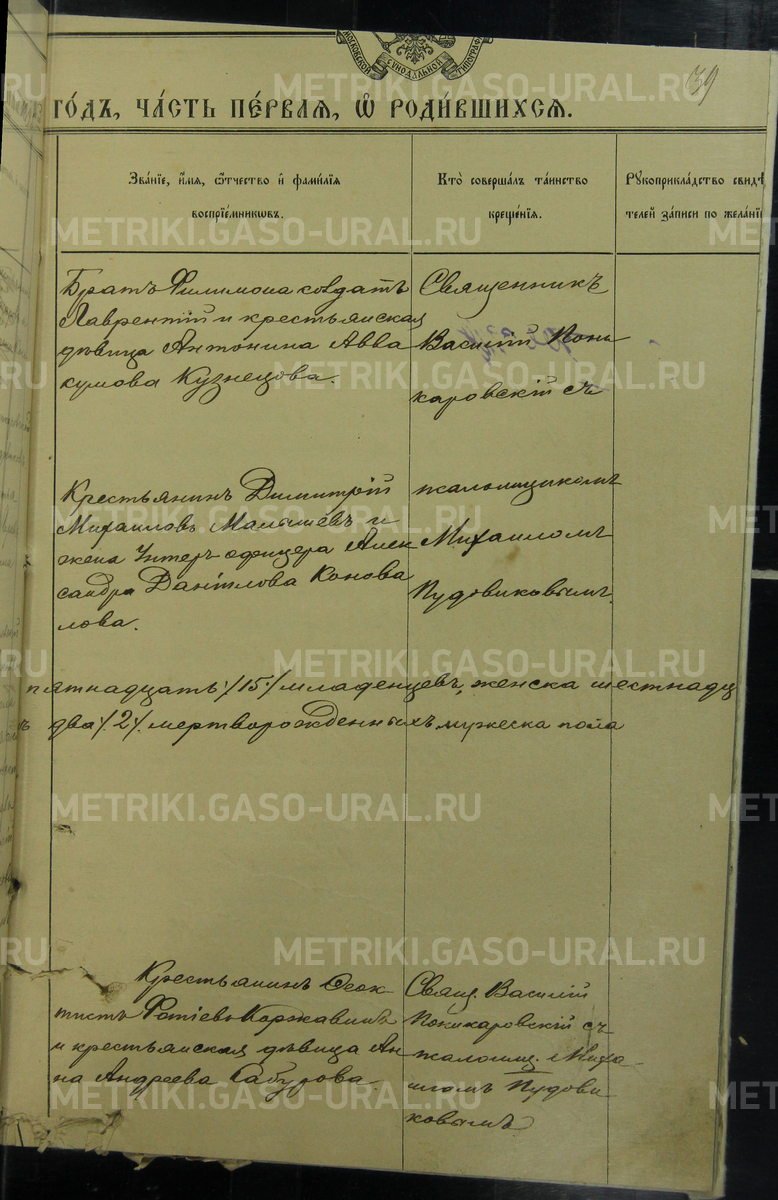 МОСКОВСКОЙ СѴНОДАЛЬНОЙ ТИПОГРАФ
39
ГО́ДЪ, ЧА́СТЬ ПЕ́РВАѦ, Ѿ РОДИ́ВШИХСѦ.
Зва́нїе, и́мѧ, ѻ҆́тчество и҆ фами́лїѧ
воспрїе́мникѡвъ.
Кто̀ соверша́лъ та́инство
креще́нїѧ.
Рꙋкоприкла́дство свидѣ́
телей за́писи по жела́нї
Братъ Филимона солдатъ
Лаврентій и крестьянская
дѣвица Антонина Авва
кумова Кузнецова.
Священникъ
Василій Пони
каровскій съ
Крестьянинъ Димитрій
Михаиловъ Малышевъ и
жена Унтеръ-офицера Алек
сандра Даніилова Конова
лова.
псаломщикомъ
Михаиломъ
Пудовиковымъ.
пятнадцать /15/ младенцевъ, женска шестнадц
два /2/ мертворожденныхъ мужеска пола
Крестьянинъ Ѳеок-
тистъ Фотіевъ Коржавинъ
и крестьянская дѣвица Ан
на Андреева Сабурова
Свящ. Василій
Поникаровскій съ
псаломщ. Миха-
иломъ Пудови-
ковымъ
METRIKI.GASO-URAL.RU